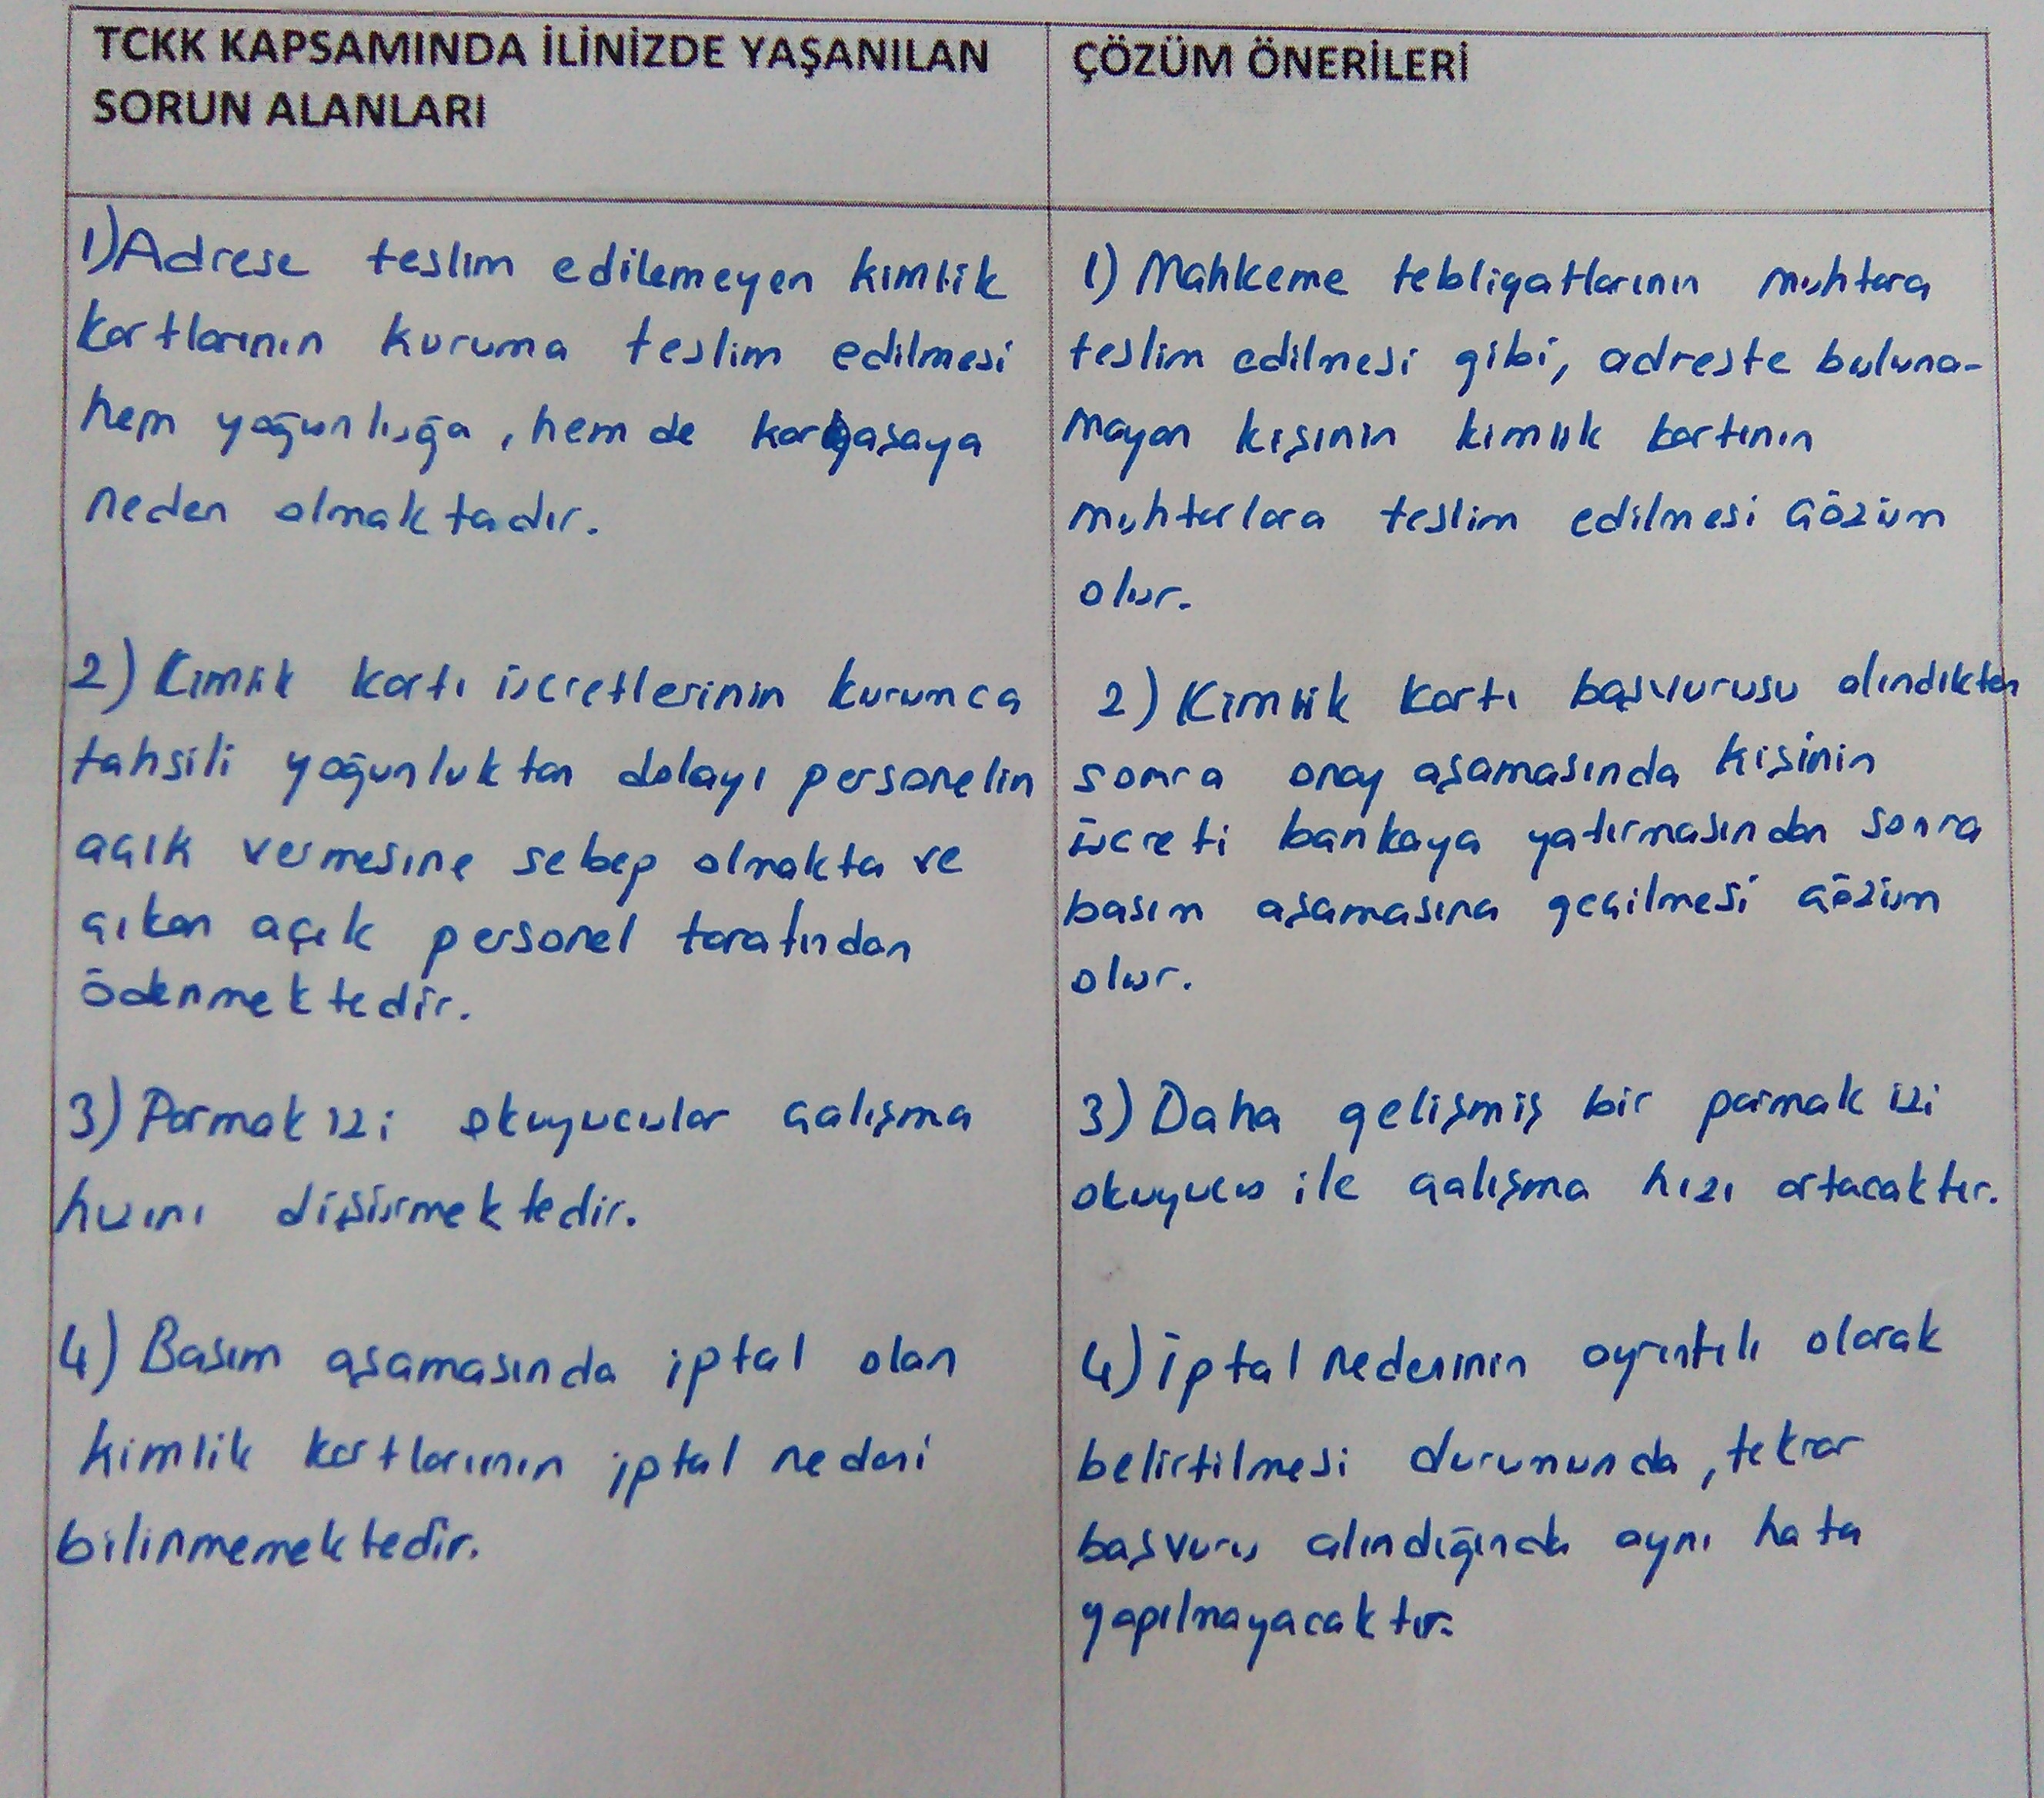 TCKK KAPSAMINDA İLİNİZDE YAŞANILAN
SORUN ALANLARI
1) Adrese teslim edilemeyen kimlik
kartlarının kuruma teslim edilmesi
hem yoğunluğa, hem de kargaşaya
neden olmaktadır.
2) Kimlik kartı ücretlerinin kurumca
tahsili yoğunluktan dolayı personelin
açık vermesine sebep olmakta ve
çıkan açık personel tarafından
ödenmektedir.
3) Parmak izi okuyucular çalışma
hızını düşürmektedir.
4) Basım aşamasında iptal olan
kimlik kartlarının iptal nedeni
bilinmemektedir.
ÇÖZÜM ÖNERİLERİ
1) Mahkeme tebligatlarının muhtara
teslim edilmesi gibi, adreste buluna-
mayan kişinin kimlik kartının
muhtarlara teslim edilmesi çözüm
olur.
2) Kimlik kartı başvurusu alındıktan
sonra onay aşamasında kişinin
ücreti bankaya yatırmasından sonra
basım aşamasına geçilmesi çözüm
olur.
3) Daha gelişmiş bir parmak izi
okuyucu ile çalışma hızı artacaktır.
4) İptal nedeninin ayrıntılı olarak
belirtilmesi durumunda, tekrar
başvuru alındığında aynı hata
yapılmayacaktır.